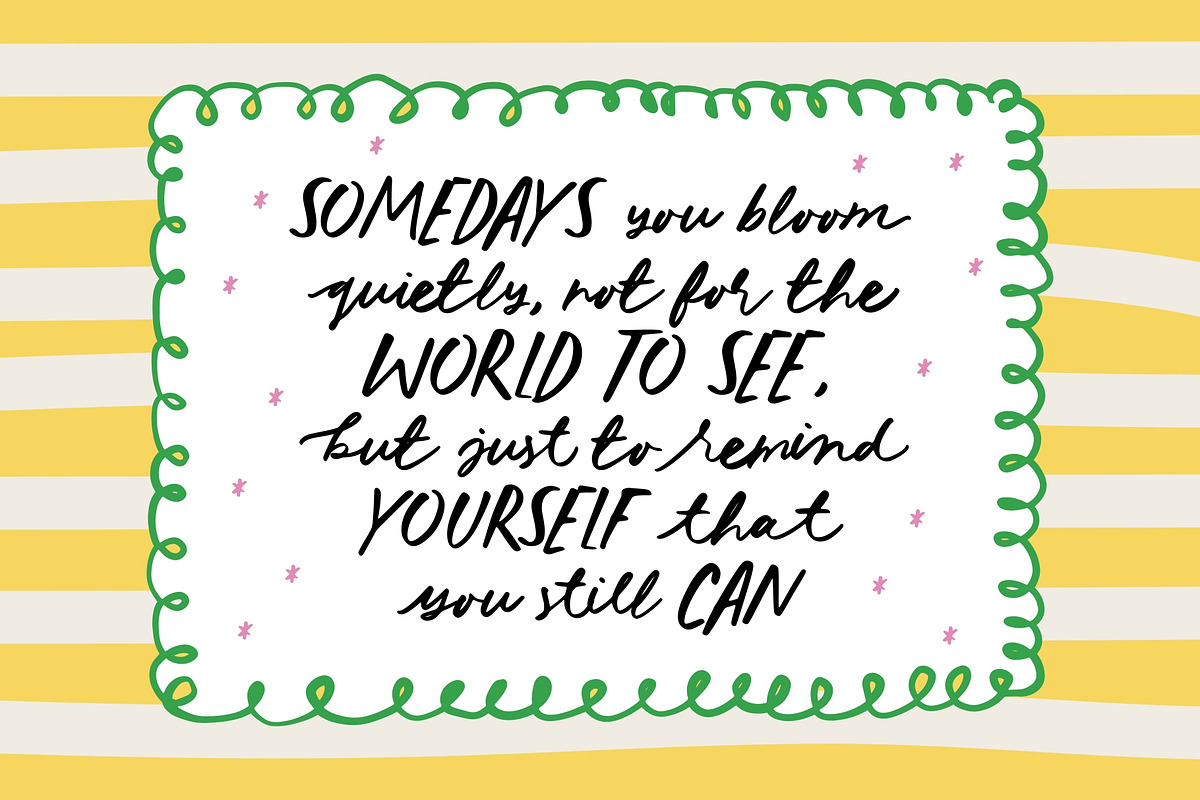 SOMEDAYS you bloom
quietly, not for the
WORLD TO SEE,
but just to remind
YOURSELF that
you still CAN